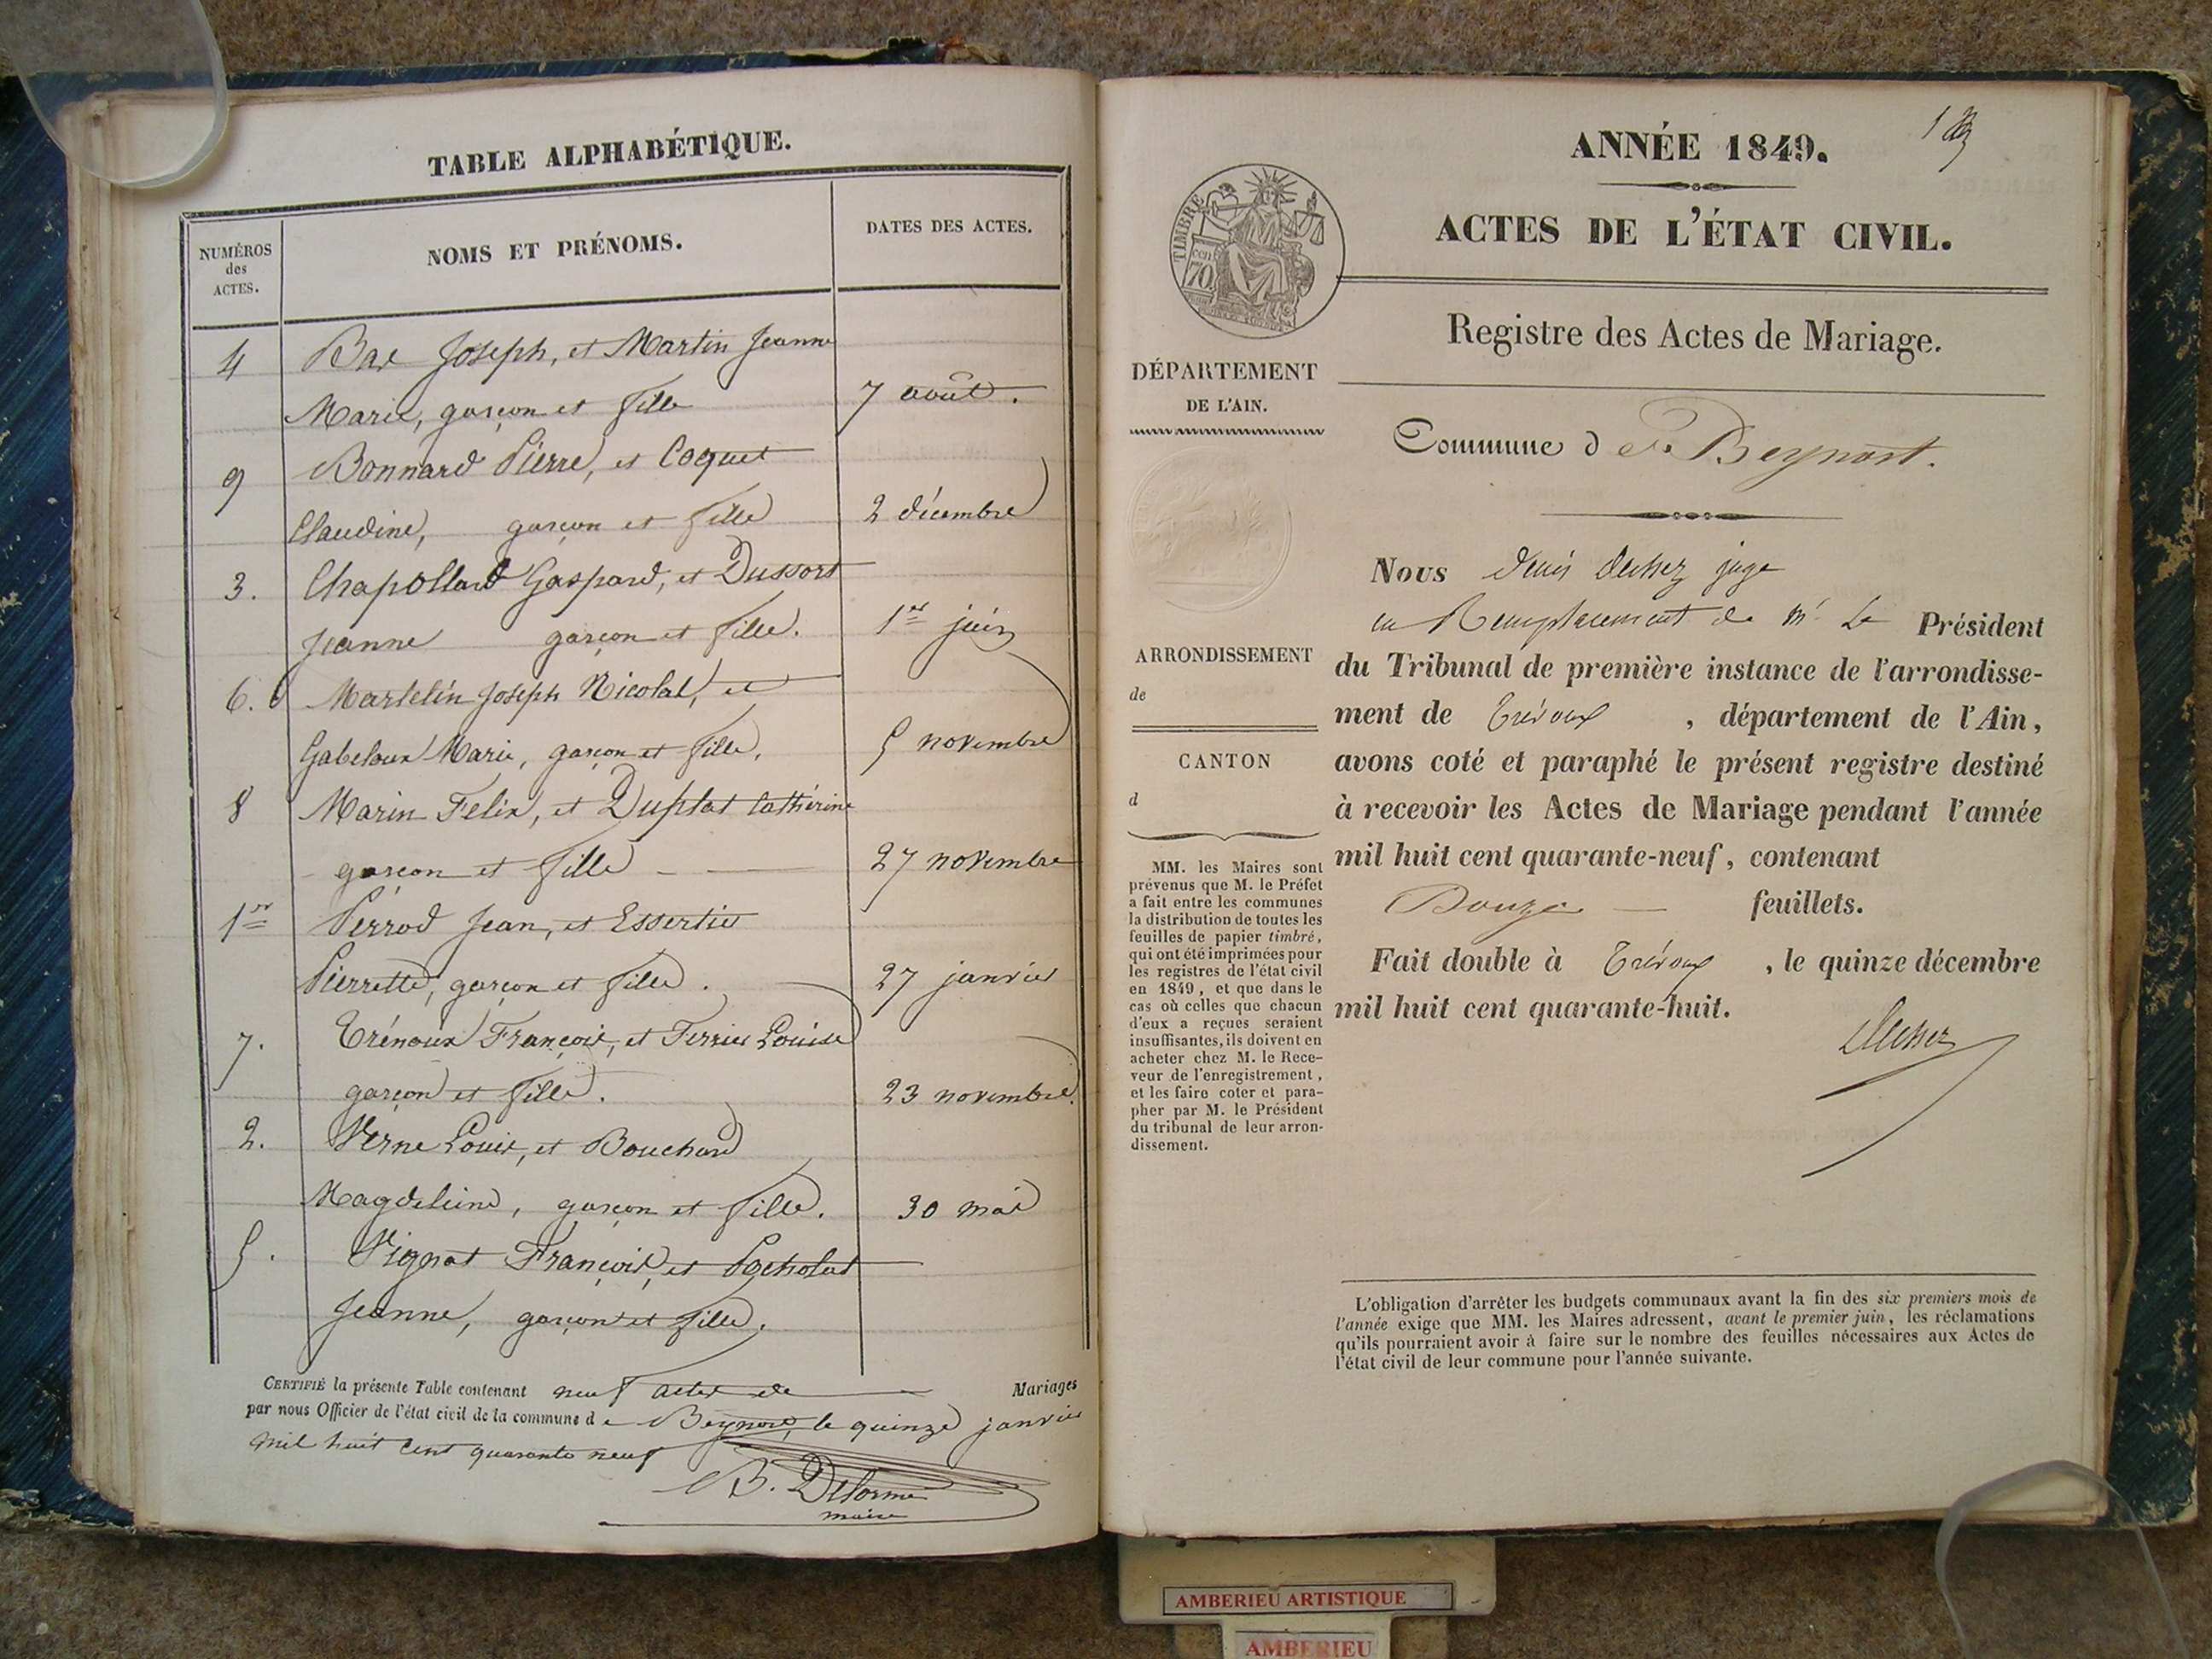 TABLE ALPHABÉTIQUE.
NUMÉROS
des
ACTES.
NOMS ET PRÉNOMS.
DATES DES ACTES.
4 Bax Joseph, et Martin Jeanne
Marie, garçon et fille 7 août.
9 Bonnard Pierre, et Coquet
Claudine, garçon et fille 2 décembre
3. Chapolland Gaspard, et Dussort
Jeanne garçon et fille. 1er juin
6. Martelin Joseph Nicolas, et
Marie, garçon et fille. 5 novembre
8 Marin Felix, et Duplat Cathérine
garçon et fille 27 novembre
1er Perrod Jean, et Essertier
Pierrette, garçon et fille. 27 janvier
7. Trénoux François, et Ferrier Louise
garçon et fille. 23 novembre.
2. Verne Louis, et Bouchard
Magdeleine, garçon et fille. 30 mai
5. Vignat François, et
Jeanne, garçon et fille.
CERTIFIÉ la présente Table contenant neuf actes de Mariages
par nous Officier de l'état civil de la commune de Beynost, le quinze janvier
mil huit cent quarante neuf
B. Delorme
maire
ANNÉE 1849.
ACTES DE L'ÉTAT CIVIL.
TIMBRE
70
cen
Registre des Actes de Mariage.
DÉPARTEMENT
DE L'AIN.
Commune de Beynost.
Nous Denis juge
en Remplacement de Mr Le Président
ARRONDISSEMENT
de
CANTON
d
du Tribunal de première instance de l'arrondisse-
ment de Trévoux, département de l'Ain,
avons coté et paraphé le présent registre destiné
à recevoir les Actes de Mariage pendant l'année
mil huit cent quarante-neuf, contenant
Douze feuillets.
Fait double à Trévoux, le quinze décembre
mil huit cent quarante-huit.
MM. les Maires sont
prévenus que M. le Préfet
a fait entre les communes
la distribution de toutes les
feuilles de papier timbré,
qui ont été imprimées pour
les registres de l'état civil
en 1849, et que dans le
cas où celles que chacun
d'eux a reçues seraient
insuffisantes, ils doivent en
acheter chez M. le Rece-
veur de l'enregistrement,
et les faire coter et para-
pher par M. le Président
du tribunal de leur arron-
dissement.
L'obligation d'arrêter les budgets communaux avant la fin des six premiers mois de
l'année exige que MM. les Maires adressent, avant le premier juin, les réclamations
qu'ils pourraient avoir à faire sur le nombre des feuilles nécessaires aux Actes de
l'état civil de leur commune pour l'année suivante.
AMBERIEU ARTISTIQUE
AMBERIEU